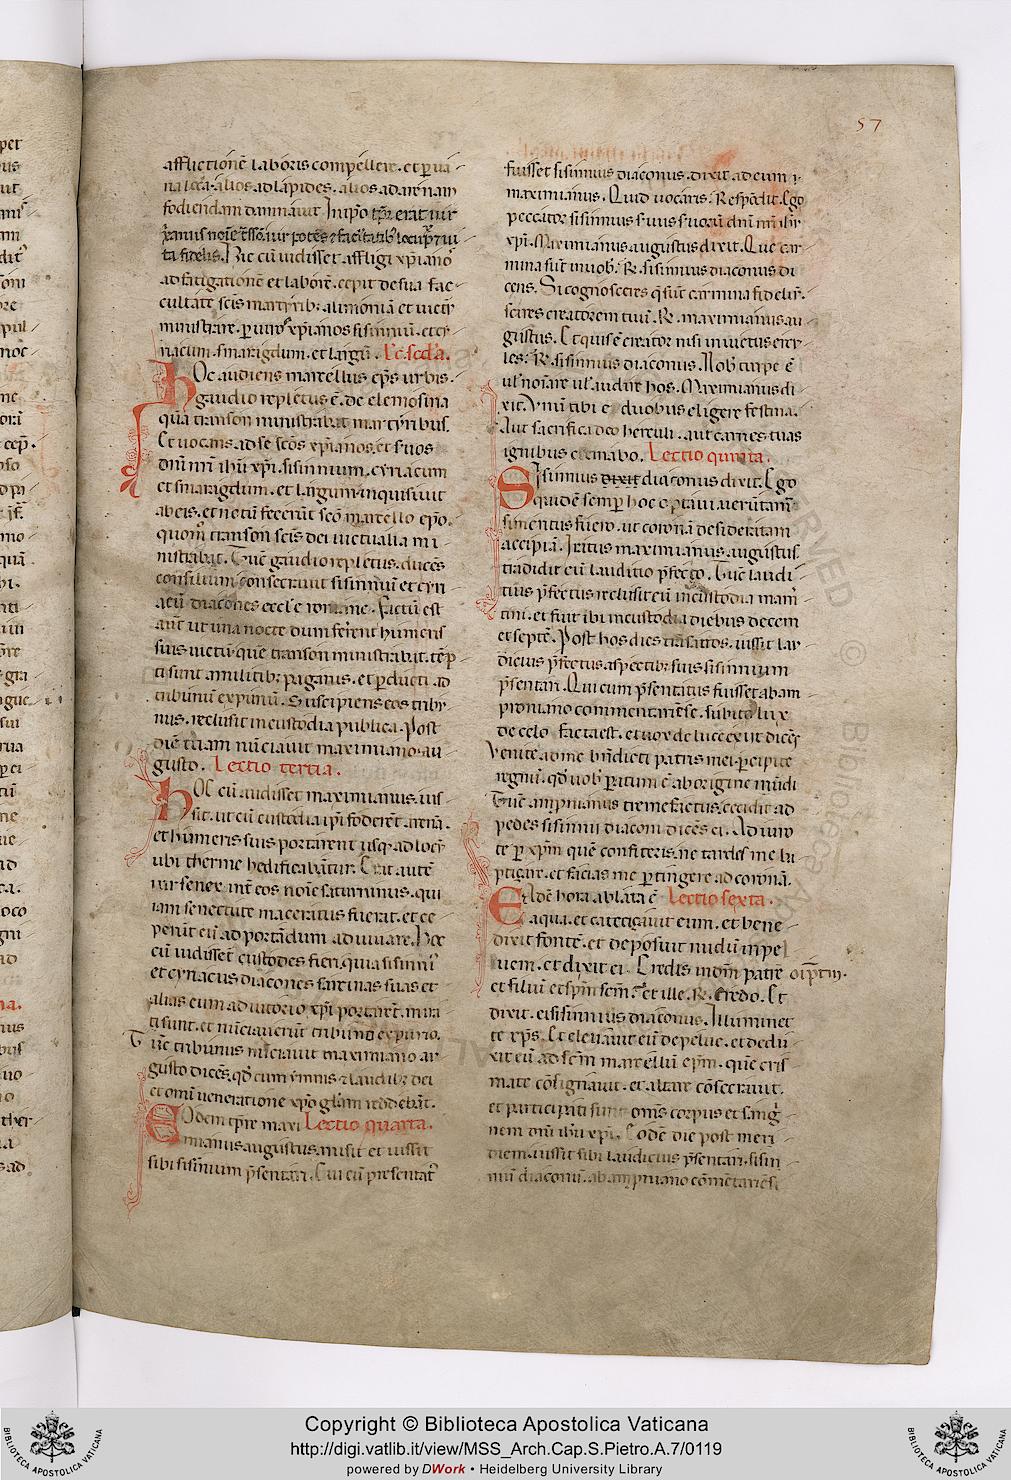 57
afflictionē laboris compellere. et p ua
ria loca. alios ad lapides. alios ad arenam
fodiendam damnauit. In ipo tpr erat uir
ta fidelis. Hic cū uidisset affligi xp̄iano
ad fatigationē et laborē. cepit de sua fac
cultate scīs martyrib; alimoniā et uictū
ministrare. p uiros xp̄ianos sisinniū. et cy
riacum. smaragdum. et largū. Lc̄. scd̄a.
Hoc audiens marcellus ep̄s urbis.
gaudio repletus ē. de elemosina
quā transon ministrabat martyribus.
Et uocans ad se scōs xp̄ianos. et suos
dn̄i nr̄i ih̄u xp̄i. sisinnium. cyriacum
et smaragdum. et largum inquisiuit
ab eis. et notū fecerūt scō marcello ep̄o.
quom̄ transon scīs dei uictualia mi
nistrabat. Tūc gaudio repletus. ducēs
consilium consecrauit sisinniū et cyri
acū diacones eccl̄e romane. Factū est
aūt ut una nocte dum ferrent humeris
suis uictū que transon ministrabat. tēp
ti sunt a militib; paganis. et p ducti ad
tribunū expuriū. Suscipiens eos tribu
nus. reclusit in custodia publica. Post
diē tertiam nūciauit maximiano au
gusto. Lectio tertia.
Hoc cū audisset maximianus. ius
sit. ut cū custodia ip̄i foderēt arenā.
et humeris suis portarent usq; ad locū
ubi therme hedificabātur. Erat autē
uir senex int̄ eos noīe saturninus. qui
iam senectute maceratus fuerat. et ce
perūt eū ad portādum adiuuare. Hoc
cū uidissēt custodes fieri. quia sisinni
et cyriacus diacones sarcinas suas et
alias eum adiutorio xp̄i portarēt. mira
ti sunt. et nūciauerūt tribuno expurio.
Tūc tribunus nūciauit maximiano au
gusto dicēs. qd̄ cum ymnis & laudib; dei
et omī ueneratione xp̄o gl̄iam reddebāt.
Eodem tp̄re maxi Lectio quarta.
mianus augustus. misit et iussit
sibi sisinnium p̄sentari. Cui cū presentat
fuisset sisinnius diaconus. dixit ad eum
maximianus. Quid uocaris. Respōdit. Ego
peccator sisinnius seruus seruorū dn̄i nr̄i ih̄u
xp̄i. Maximianus augustus dixit. Que car
mina sūt in uob̄. R̄. sisinnius diaconus di
cens. Si cognosceres q̄ sūt carmina fidelium.
scires creatorem tuū. R̄. maximianus au
gustus. Et quis ē creator nisi inuictus ercu
les. R̄. sisinnius diaconus. Nob̄ turpe ē
ul̄ noīare ul̄ audire hos. Maximianus di
xit. Vnū tibi e duobus eligere festina.
Aut sacrifica deo herculi. aut carnes tuas
ignibus cremabo. Lectio quinta.
Sisinnius dixit diaconus dixit. Ego
quidē semp hoc optaui. uerūtam̄
si meritus fuero. ut coronā desideratam
accipiā. Iratus maximianus augustus.
tradidit eū lauditio p̄fecto. Tūc laudi
tius p̄fectus reclusit eū in custodia mam̄
tini. et fuit ibi in custodia diebus decem
et septē. Post hos dies trāsactos. iussit lau
dicius p̄fectus aspectib; suis sisinnium
p̄sentari. Qui cum p̄sentatus fuisset ab am
proniano commentariēse. subito lux
de celo facta est. et uox de luce exiit dicēs
Venite ad me bn̄dicti patris mei. p cipite
regnū. qd̄ uob̄ paratum ē ab origine mūdi
Tūc ampnianus tremefactus. cecidit ad
pedes sisinnii diaconi dicēs ei. Adiuro
te p xp̄m quē confiteris. ne tardes me ba
ptizare. et facias me p tingere ad coronā.
Eadē hora ablata ē Lectio sexta.
aqua. et catetizauit eum. et bene
dixit fontē. et deposuit nudū in pe
luem. et dixit ei. Credis in dm̄ patrē oīpt̄m.
et filiū et sp̄m scm̄. Et ille. R̄. Credo. Et
dixit. ei sisinnius diaconus. Illuminet
te xp̄s. Et eleuauit eū de pelue. et dedu
xit eū ad scm̄ marcellū ep̄m. quē cris
mate cōsignauit. et altare cōsecrauit.
et participati sunt oms̄ corpus et sangui
nem dn̄i ih̄u xp̄i. Eodē die post meri
diem. iussit sibi laudicius p̄sentari. sisin
niū diaconū. ab ampniano cōmētariēse
Copyright © Biblioteca Apostolica Vaticana
http://digi.vatlib.it/view/MSS_Arch.Cap.S.Pietro.A.7/0119
powered by DWork • Heidelberg University Library
BIBLIOTECA APOSTOLICA VATICANA
BIBLIOTECA APOSTOLICA VATICANA